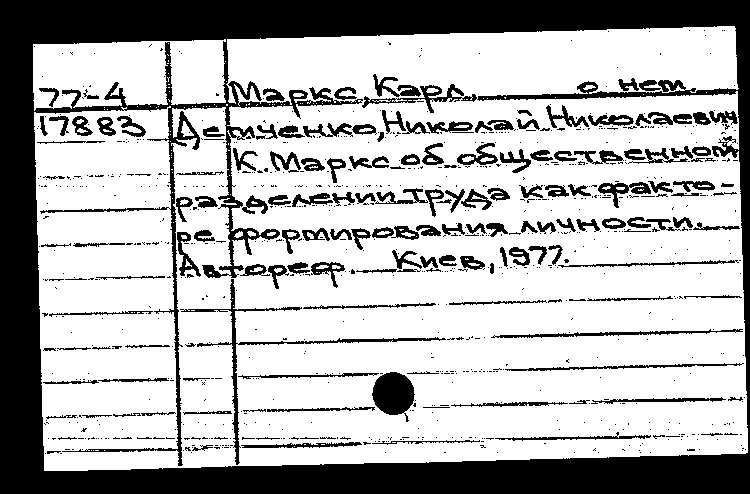 77-4 Маркс, Карл, о нем.
17883 Демченко, Николай Николаевич
К. Маркс об общественном
разделении труда как факто-
ре формирования личности.
Автореф. Киев, 1977.